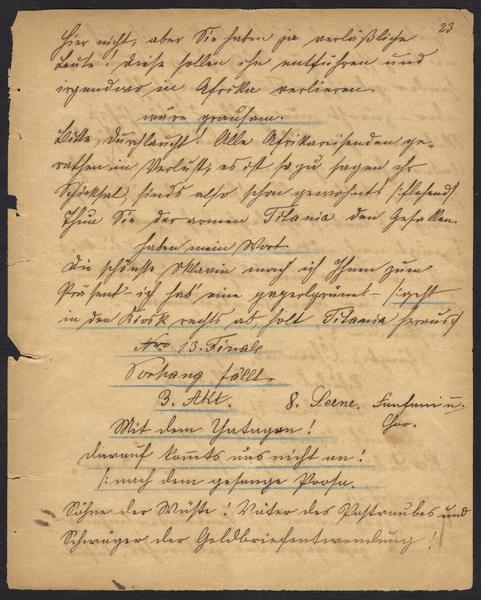 23
Hier nicht, aber Sie haben ja verläßliche
Leute! Diese sollen ihn entführen und
irgendwo in Afrika verlieren.
wäre grausam.
Bitte, Durchlaucht! Alle Afrikareisenden ge-
rathen in Verlust, es ist so zu sagen ihr
Schicksal, sinds also schon gewohnt /:flehend:/
Thun Sie der armen Titania den Gefallen.
haben mein Wort
Die schönste Sklavin mach ich Ihnen zum
Präsent – ich hab' eine – /:geht
in den Kiosk rechts ab, holt Titania heraus:/
Nro 13. Finale
Vorhang fällt.
3. Akt. 8. Scene. Fanfani u.
Chor.
Mit dem Yatagan!
darauf kommts uns nicht an!
/: nach dem gesange Prosa.
Söhne der Wüste! Väter des Postraubes und
Schwäger der Geldbriefentwendung!